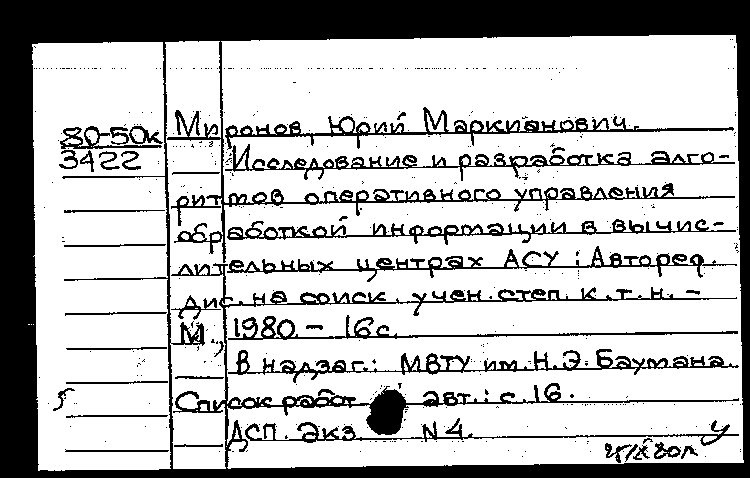 80-50к Миронов, Юрий Маркианович.
3422 Исследование и разработка алго-
ритмов оперативного управления
обработкой информации в вычис-
лительных центрах АСУ : Автореф.
дис. на соиск. учен. степ. к.т.н. -
М., 1980. - 16 с.
В надзаг.: МВТУ им. Н.Э. Баумана.
Список работ авт.: с. 16.
ДСП. Экз. N 4. У